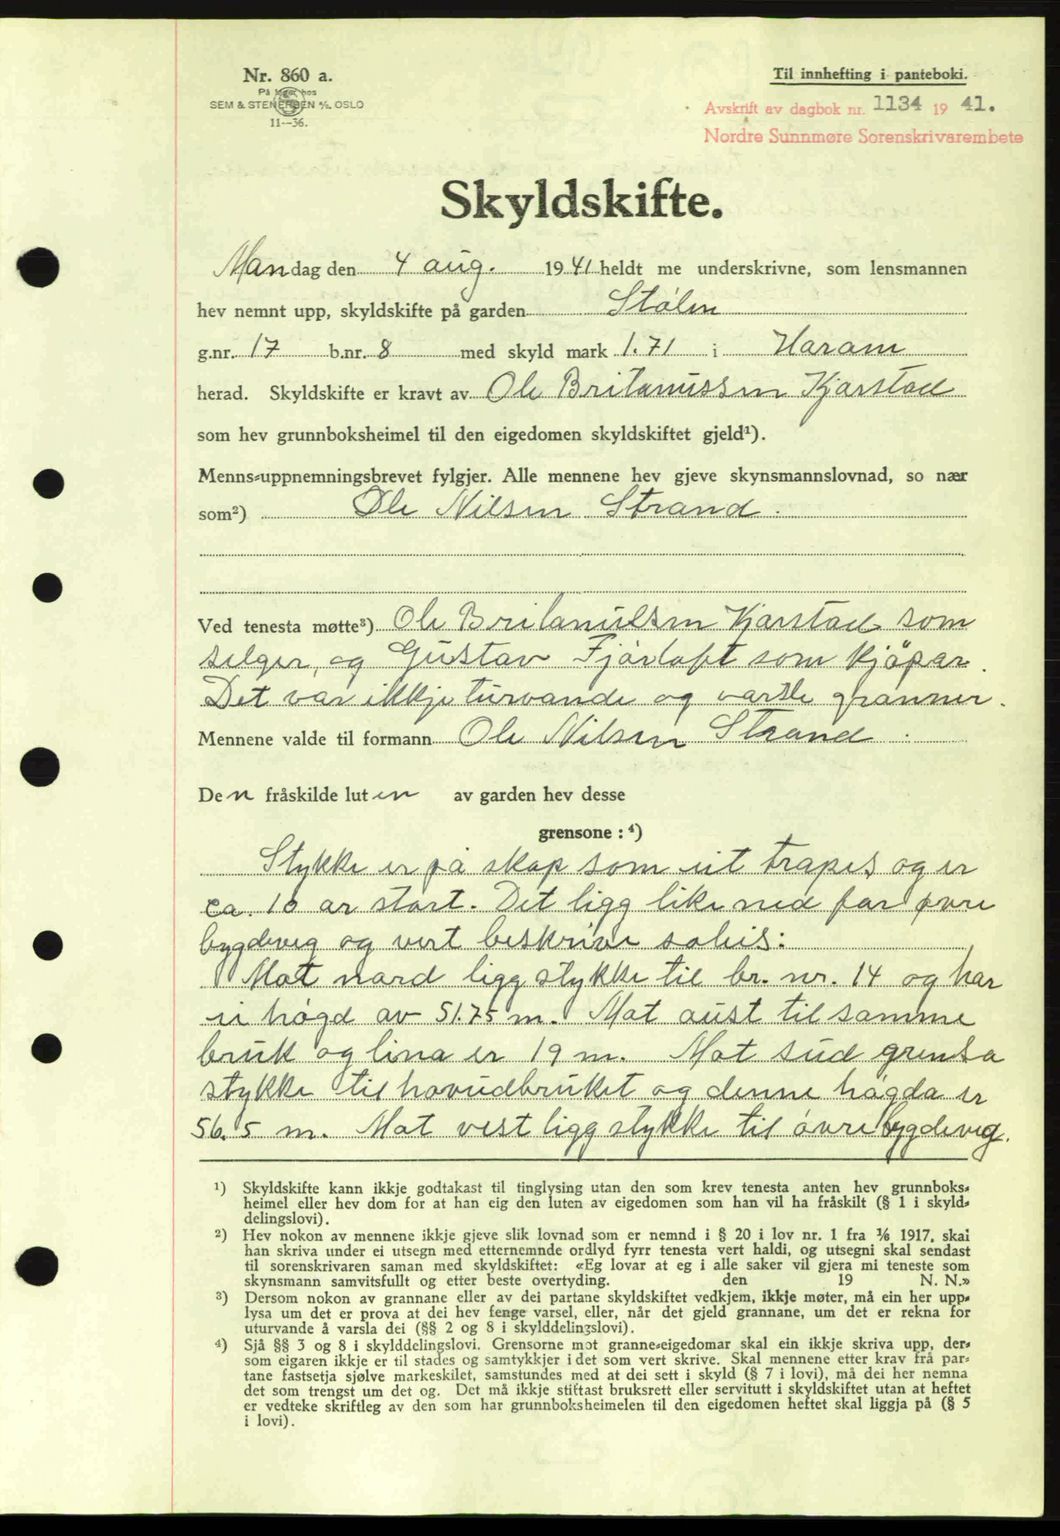 Nr. 860 a.
På lager hos
SEM & STENERSEN A/S, OSLO
11—36.
Til innhefting i panteboki.
Avskrift av dagbok nr. 1134 19 41.
Nordre Sunnmøre Sorenskrivarembete
Skyldskifte.
Mandag den 4 aug. 1941 heldt me underskrivne, som lensmannen
hev nemnt upp, skyldskifte på garden Stølen
g.nr. 17 b.nr. 8 med skyld mark 1.71 i Haram
herad. Skyldskifte er kravt av Ole Britanussen Kjærstad
som hev grunnboksheimel til den eigedomen skyldskiftet gjeld¹).
Menns-uppnemningsbrevet fylgjer. Alle mennene hev gjeve skynsmannslovnad, so nær
som²) Ole Nilsen Strand.
Ved tenesta møtte³) Ole Britanussen Kjærstad som
selger, og Gustav Fjørtoft som kjøpar.
Det var ikkje turvande og varsle granner.
Mennene valde til formann Ole Nilsen Strand.
Den fråskilde luten av garden hev desse
grensone : ⁴)
Stykke er på skap som eit trapes og er
ca. 10 ar stort. Det ligg like ned for øvre
bygdeveg og vert beskrive soleis:
Mot nord ligg stykke til br. nr. 14 og har
ei høgd av 51.75 m. Mot aust til samme
bruk og lina er 19 m. Mot sud grensa
stykke til hovudbruket og denne høgda er
56.5 m. Mot vest ligg stykke til øvre bygdeveg.
¹) Skyldskifte kann ikkje godtakast til tinglysing utan den som krev tenesta anten hev grunnboks-
heimel eller hev dom for at han eig den luten av eigedomen som han vil ha fråskilt (§ 1 i skyld-
delingslovi).
²) Hev nokon av mennene ikkje gjeve slik lovnad som er nemnd i § 20 i lov nr. 1 fra ¹/₆ 1917, skal
han skriva under ei utsegn med etternemnde ordlyd fyrr tenesta vert haldi, og utsegni skal sendast
til sorenskrivaren saman med skyldskiftet: «Eg lovar at eg i alle saker vil gjera mi teneste som
skynsmann samvitsfullt og etter beste overtyding. den 19 N. N.»
³) Dersom nokon av grannane eller av dei partane skyldskiftet vedkjem, ikkje møter, må ein her upp-
lysa um det er prova at dei hev fenge varsel, eller, når det gjeld grannane, um det er rekna for
uturvande å varsla dei (§§ 2 og 8 i skylddelingslovi).
⁴) Sjå §§ 3 og 8 i skylddelingslovi. Grensorne mot granne-eigedomar skal ein ikkje skriva upp, der-
som eigaren ikkje er til stades og samtykkjer i det som vert skrive. Skal mennene etter krav frå par-
tane fastsetja sjølve markeskilet, samstundes med at dei sett i skyld (§ 7 i lovi), må dei her nemna
det som trengst um det og. Det må ikkje stiftast bruksrett eller servitutt i skyldskiftet utan at heftet
er vedteke skriftleg av den som har grunnboksheimelen til den eigedomen heftet skal liggja på (§ 5
i lovi).